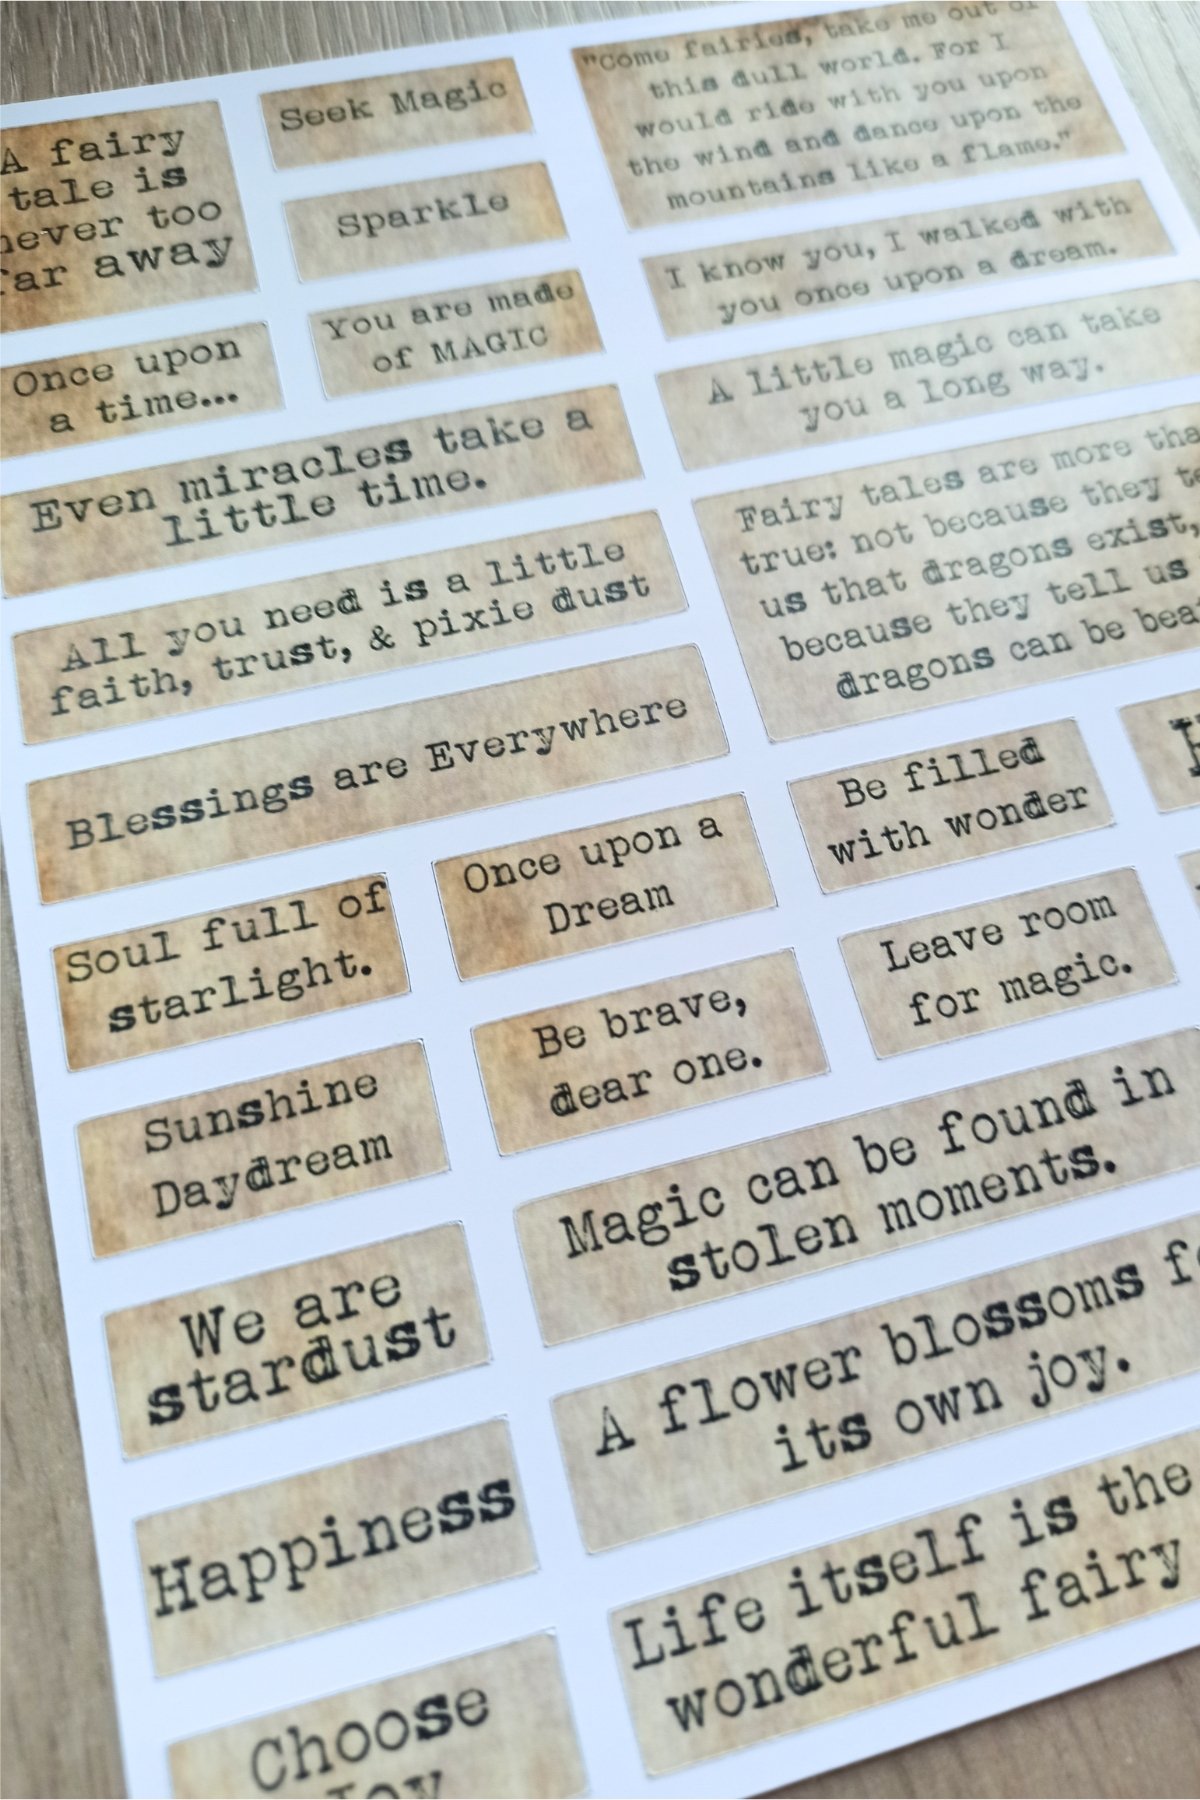 A fairy
tale is
never too
far away
Seek Magic
Sparkle
You are made
of MAGIC
Once upon
a time...
Even miracles take a
little time.
All you need is a little
faith, trust, & pixie dust
Blessings are Everywhere
Soul full of
starlight.
Once upon a
Dream
Sunshine
Daydream
Be brave,
dear one.
We are
stardust
Happiness
Choose
Joy
"Come fairies, take me out of
this dull world. For I
would ride with you upon
the wind and dance upon the
mountains like a flame."
I know you, I walked with
you once upon a dream.
A little magic can take
you a long way.
Fairy tales are more
true: not because they
us that dragons exist,
because they tell us
dragons can be
Be filled
with wonder
Leave room
for magic.
Magic can be found in
stolen moments.
A flower blossoms
its own joy.
Life itself is the
wonderful fairy